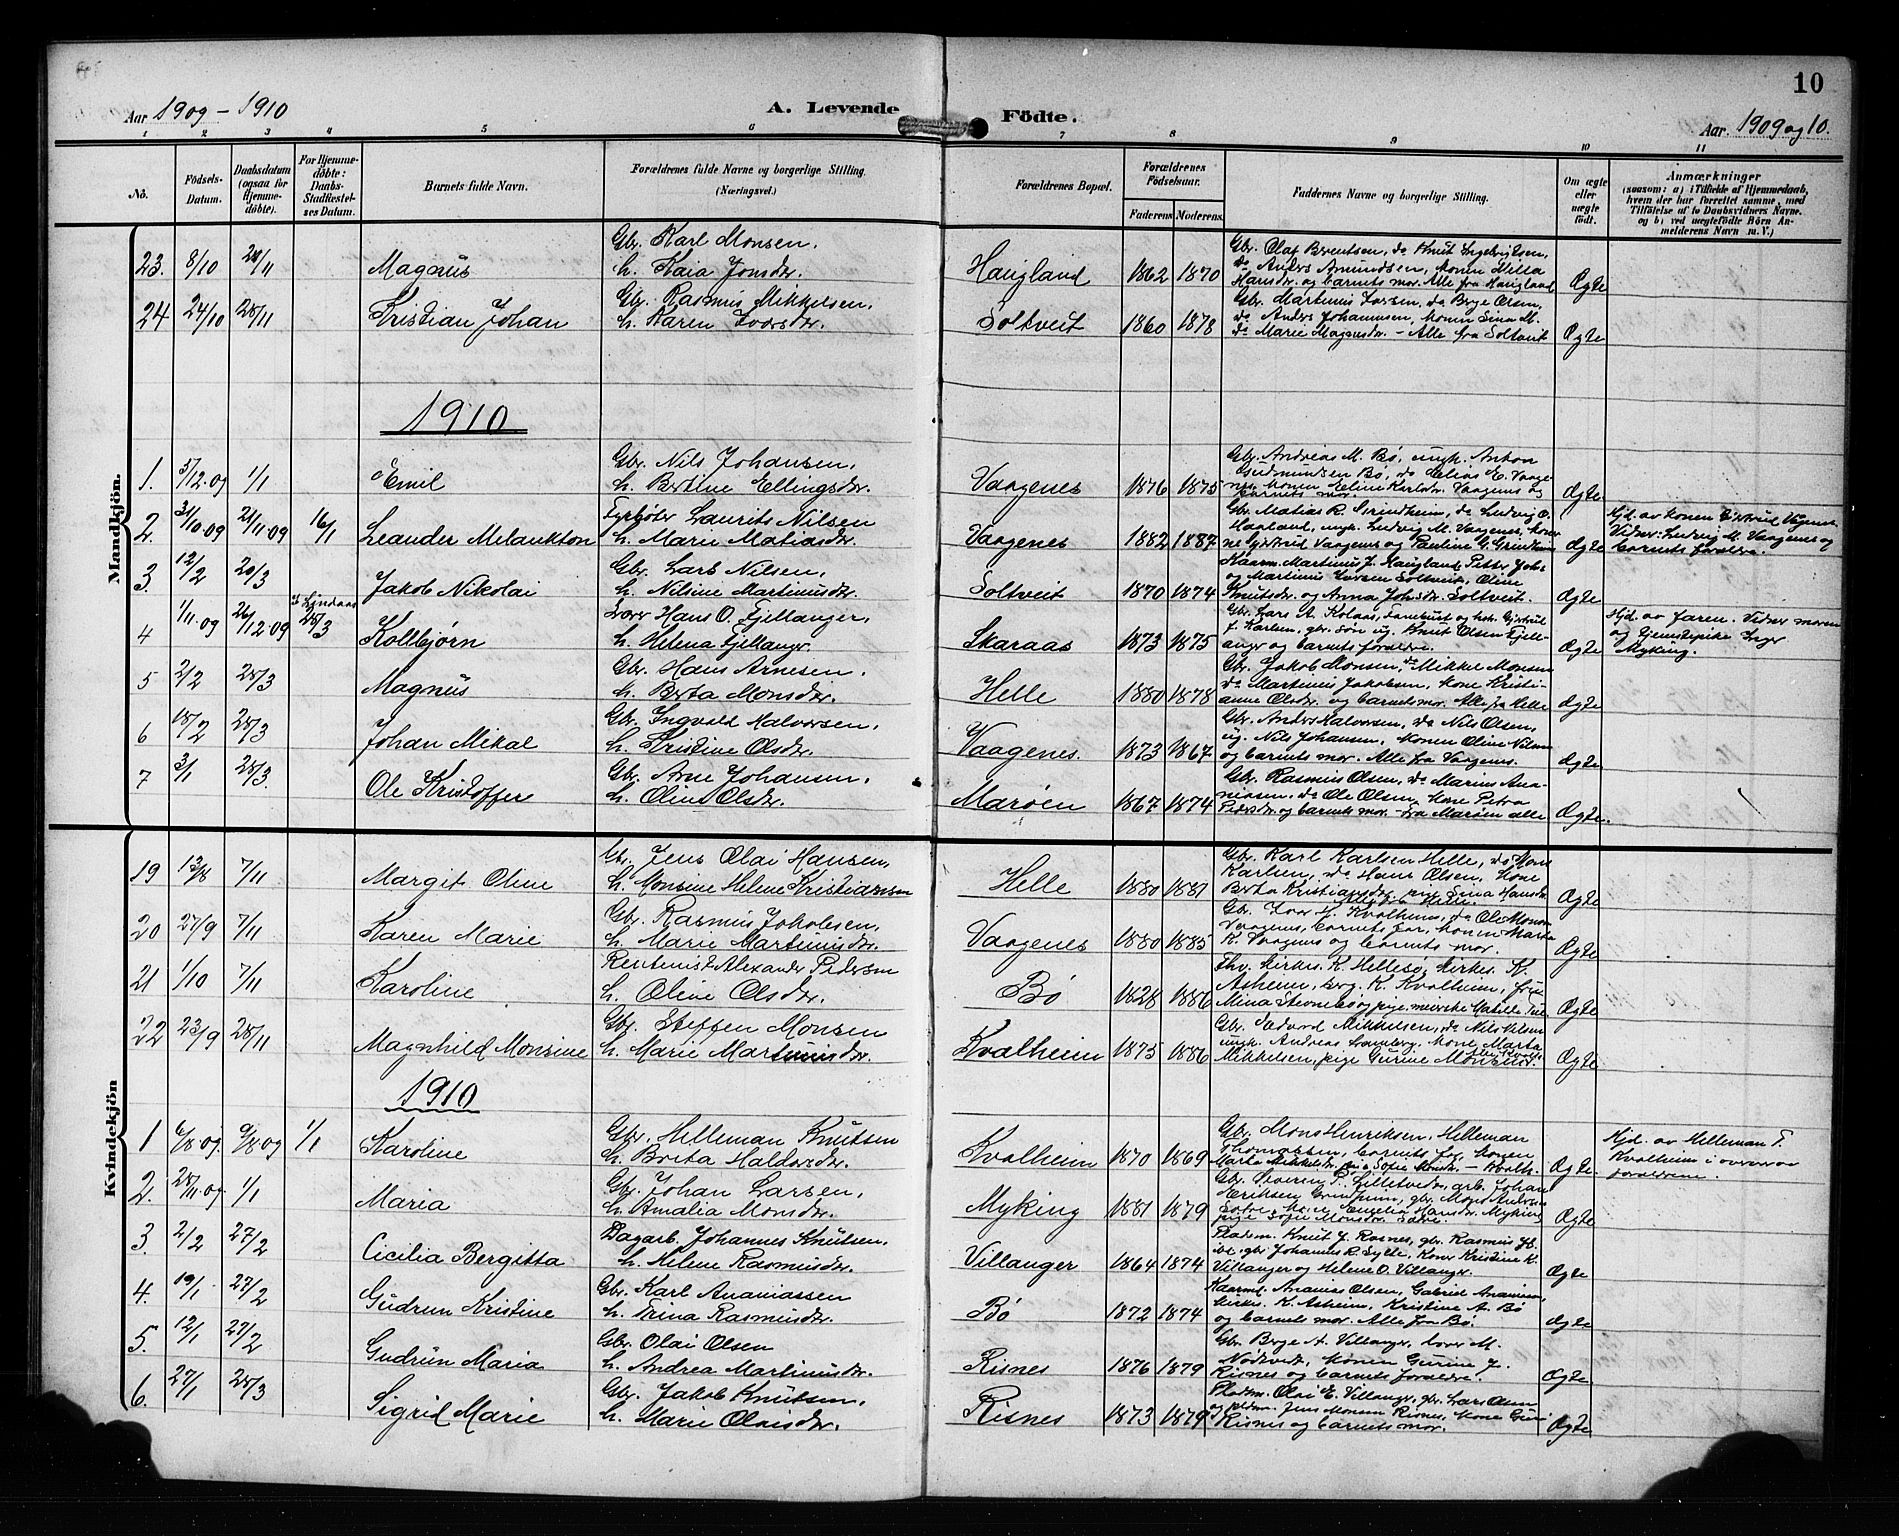 Aar 1909 – 1910
A. Levende
Födte.
10
Aar. 1909 og 10.
1 2 3 4 5 6 7 8 9 10 11
No. Födsels-Datum. Daabsdatum (ogsaa for Hjemme-döbte). For Hjemme-döbte: Daabs-Stadfæstel-ses Datum. Barnets fulde Navn. Forældrenes fulde Navne og borgerlige Stilling. (Næringsvei.) Forældrenes Bopæl. Forældrenes Födselsaar. Faderens Moderens. Faddernes Navne og borgerlige Stilling. Om ægte eller uægte födt. Anmærkninger
(saasom: a) i Tilfælde af Hjemmedaab, hvem der har forrettet samme, med Tilföielse af to Daabsvidners Navne, og b) ved uægtefödte Börn An-melderens Navn m. V.)
Mandkjön.
23. 8/10 28/11 Magnus Gbr. Karl Monsen, h. Kaia Jonsdr. Haugland 1862 1870 Gbr. Olaf Berntsen, do Knut Ingebrigtsen, do Anders Amundsen, konen Milla Hansdr. og barnets mor. Alle fra Haugland Ægte
24 24/10 28/11 Kristian Johan Gbr. Rasmus Mikkelsen, h. Karen Iversdr. Soltveit 1860 1878 Gbr. Martinus Iversen, do Brye Olsen, do Anders Johannesen, konen Sina M. do Marie Magnusdr. – Alle fra Soltveit Ægte
1910
1. 5/12.09 1/1 Emil Gbr. Nils Johansen, h. Bertine Ellingsdr. Vaagenes 1876 1875 Gbr. Andreas M. Bø, ungk. Anton Gudmundsen Bø, do Elias E. Vaagenes, konen Eline Karlsdr. Vaagenes og barnets mor. Ægte
2. 31/10.09 21/11.09 16/1 Leander Melankton Fyrbøter Laurits Nilsen h. Marie Matiasdr. Vaagenes 1882 1887 Gbr. Matias R. Grindheim, do Ludvig O. Haugland, ungk. Ludvig M. Vaagenes, konene Gjertrud Vaagenes og Pauline G. Grindheim Ægte Hjd. av konen Gjertrud Vågenes Vidner: Ludvig M. Vaagenes og barnets forældre.
3. 12/2 20/3 Jakob Nikolai Gbr. Lars Nilsen, h. Nilsine Martinusdr. Soltveit 1870 1874 Kaarm. Martinus J. Haugland, Petter Johs. og Martinus Iversen Soltveit, Oline Knutsdr. og Anna Johsdr. Soltveit. Ægte
4 1/11.09 26/12.09 I Lindaas 28/3 Kolbjørn Lærer Hans O. Fjellanger, h. Helena Fjellanger. Skaraas 1873 1875 Gbr. Lars A. Kolaas, Knut Olsen Fjellanger og barnets forældre. Ægte Hjd. av faren. Vidner moren og tjenestepike Inger Myking.
5 2/2 28/3 Magnus Gbr. Hans Arnesen, h. Berta Monsdr. Helle 1880 1878 Gbr. Jakob Monsen, do Mikkel Monsen do Martinus Jakobsen, kone Kristianne Olsdr. og barnets mor. Alle fra Helle Ægte
6 18/2 28/3 Johan Mikal Gbr. Ingvald Halvorsen, h. Kristine Olsdr. Vaagenes. 1873 1867 Gbr. Anders Halvorsen, do Nils Olsen, ug. Nils Johansen, konen Oline Nilsen og barnets mor. Alle fra Vaagenes. Ægte
7 3/1 28/3. Ole Kristoffer Gbr. Arne Johansen, h. Oline Olsdr. Marøen 1867 1874 Gbr. Rasmus Olsen, do Marius Ananiasen, do Ole Olsen, kone Petra Pedersdr. og barnets mor. – fra Marøen alle Ægte.
Kvindekjön
19 13/8 7/11 Margit Oline Gbr. Jens Olai Hansen, h. Monsine Helene Kristiansen Helle 1880 1881 Gbr. Karl Karlsen Helle, do Mons Karlsen, do Hans Olsen, kone Berta Kristiansdr. pige Sina Hansdr. Alle fra Helle. Ægte
20 27/9 7/11 Karen Marie Gbr. Rasmus Jakobsen, h. Marie Martinusdr. Vaagenes 1880 1885 Gbr. Ivar J. Kvalheim, do Ole Monsen Vaagenes, barnets far, konen Marta K. Vaagenes og barnets mor. Ægte
21 1/10 7/11 Karoline Rentenist Alexander Pedersen h. Oline Olsdr. Bø 1828 1886 Ægte
22 23/9 28/11 Magnhild Monsine Gbr. Steffen Monsen h. Marie Martinusdr. Kvalheim 1875 1886 Gbr. Edvard Mikkelsen, do Nils Nilsen ungk. Andreas kone Marta Mikkelsen, pige Gurine Monsdr. Ægte
1910
1 6/8.09. 9/8.09 1/1 Karoline Gbr. Helleman Knutsen h. Brita Haldorsdr. Kvalheim 1870 1869 Gbr. Mons Henriksen, Helleman Thomassen, barnets far, konen Marta Mikkelsdr. pige Sofie Monsdr. – Kvalh. Ægte Hjd. av Helleman T. Kvalheim i overvær forældrene.
2. 28/11.09. 1/1 Maria Gbr. Johan Larsen, h. Amalia Monsdr. Myking 1881 1879 Johan Eriksen Grindheim, gbr. Mons Andersen Sætre, kone Amalia Hansdr. Myking pige Sofie Monsdr. Sætre. Ægte
3. 2/2 27/2 Cicilia Bergitta Dagarb. Johannes Knutsen, h. Helene Rasmusdr. Villanger 1864 1874 Pladsm. Knut J. Risnes, gbr. Johannes R. Sylte, kone Kristine K. Villanger og Helene O. Villanger. Ægte
4. 19/1 27/2 Gudrun Kristine Gbr. Karl Ananiassen h. Trina Rasmusdr. Bø 1872 1874 Kaarmd. Ananias Olsen, Gabriel Ananiasen, Kirkes. K. Asheim, Kristine A. Bø og barnets mor. Alle fra Bø. Ægte
5. 12/1 27/2 Gudrun Maria Gbr. Olai Olsen h. Andrea Martinusdr. Risnes 1876 1879 Gbr. Brye A. Villanger, lærer M. Nødtvedt, konen Gurine J. Risnes og barnets forældre. Ægte
6. 27/1 28/3 Sigrid Marie Gbr. Jakob Knutsen, h. Marie Olaisdr. Risnes 1873 1879 Pladsm. Olai E. Villanger, gbr. Lars Olsen og pldsm. Jens Monsen Risnes, kone Guri Risnes og barnets mor. Ægte